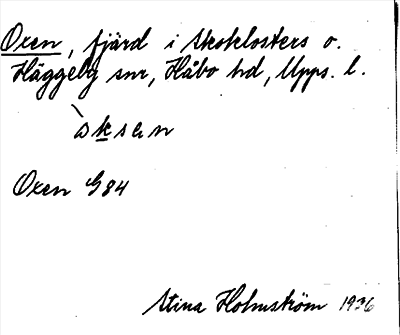 Oxen, fjärd i Skoklosters o.
Häggeby snr, Håbo hd, Upps. l.
Oxen G84
Stina Holmström 1936